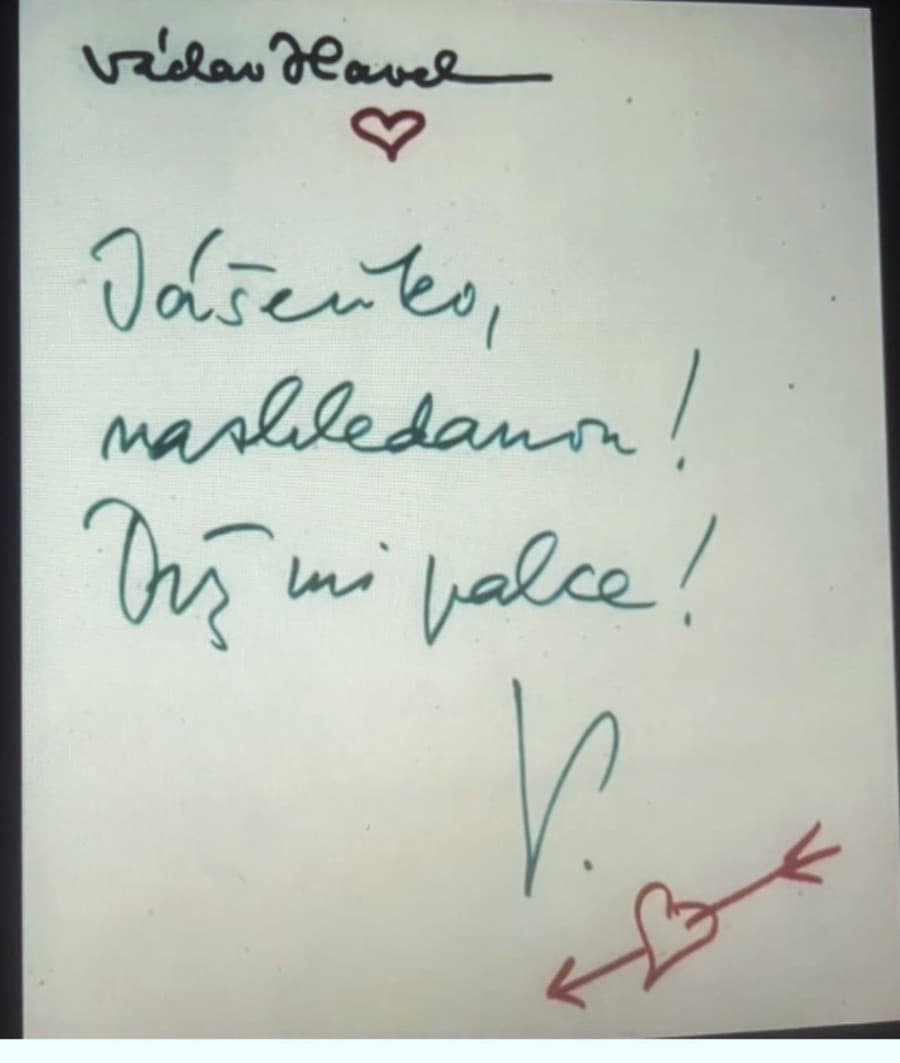 Václav Havel
Jášenko,
nashledanou!
Drž mi palce!
V.